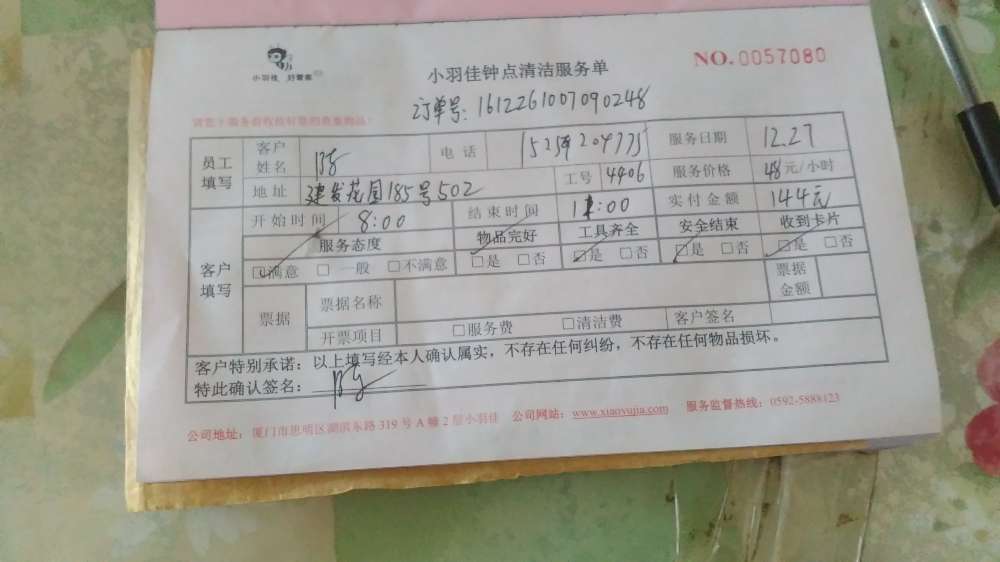 小羽佳 好管家
NO.0057080
小羽佳钟点清洁服务单
订单号:1612261007090248
员工填写 客户姓名 陈 电话 服务日期 12.27
地址 建发花园185号502 工号 4406 服务价格 48元/小时
客户填写 开始时间 8:00 结束时间 11:00 实付金额 144元
服务态度 物品完好 工具齐全 安全结束 收到卡片
☑满意 □一般 □不满意 ☑是 □否 ☑是 □否 ☑是 □否 ☑是 □否
票据 票据名称 票据金额
开票项目 □服务费 □清洁费 客户签名
客户特别承诺:以上填写经本人确认属实,不存在任何纠纷,不存在任何物品损坏。
特此确认签名: 陈
公司地址:厦门市思明区湖滨东路319号A幢2层小羽佳 公司网站:www.xiaoyujia.com 服务监督热线:0592-5888123